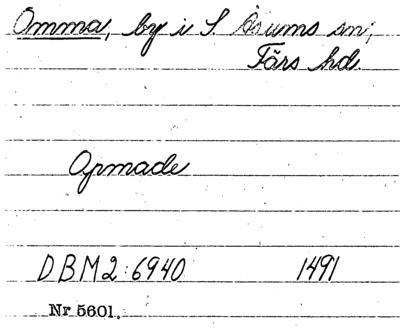 Omma, by i S Åsums sn,
Färs hd
Opmade
DBM2:6940 1491
Nr 5601.